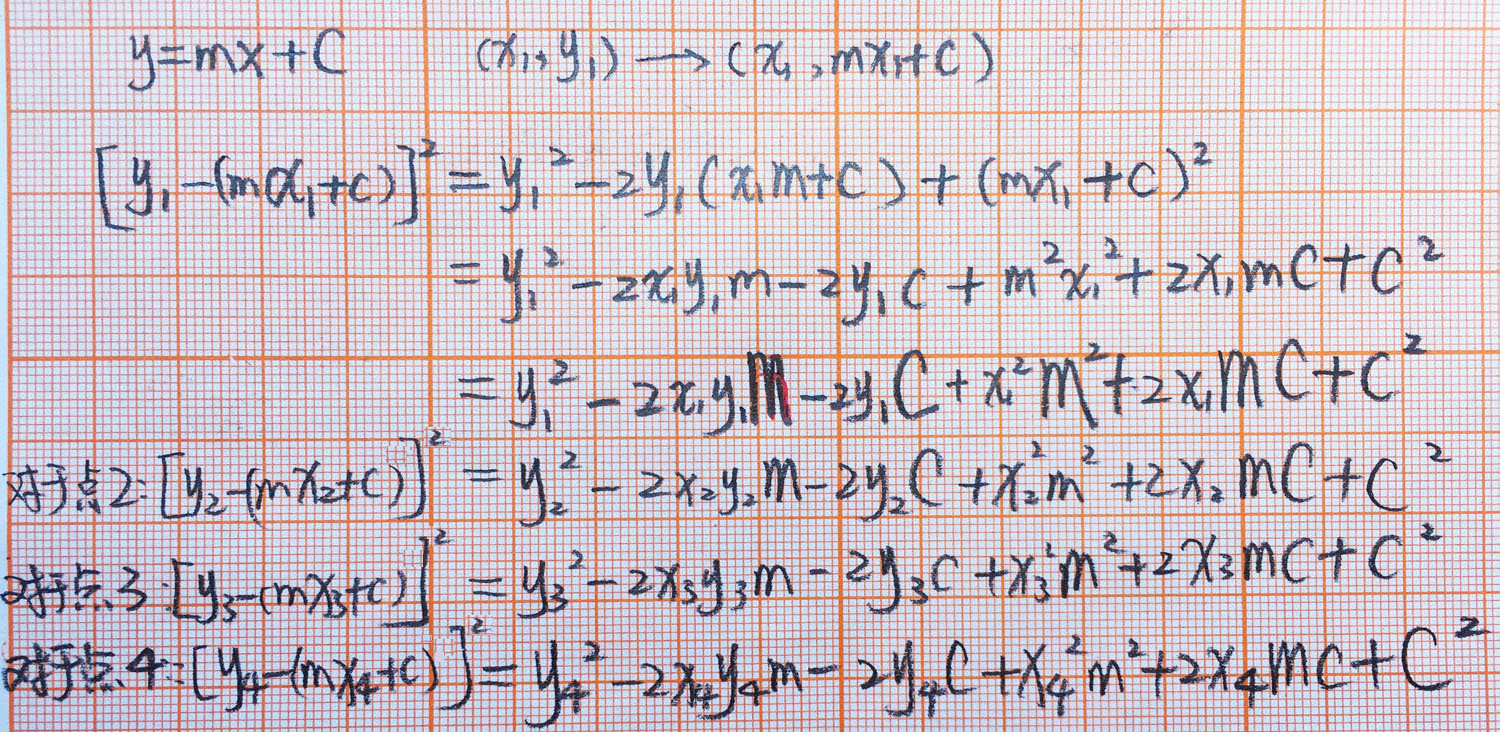 y=mx+C (x₁,y₁)→(x₁,mx₁+C)
[y₁-(mx₁+c)]²=y₁²-2y₁(x₁m+C)+(mx₁+C)²
=y₁²-2x₁y₁m-2y₁C+m²x₁²+2x₁mC+C²
=y₁²-2x₁y₁m-2y₁C+x₁²m²+2x₁mC+C²
对于点2:[y₂-(mx₂+C)]²=y₂²-2x₂y₂m-2y₂C+x₂²m²+2x₂mC+C²
对于点3:[y₃-(mx₃+C)]²=y₃²-2x₃y₃m-2y₃C+x₃²m²+2x₃mC+C²
对于点4:[y₄-(mx₄+C)]²=y₄²-2x₄y₄m-2y₄C+x₄²m²+2x₄mC+C²